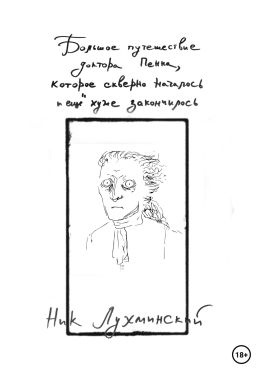 Большое путешествие
доктора Пенка,
которое скверно началось
и ещё хуже закончилось
Ник Лухминский
18+